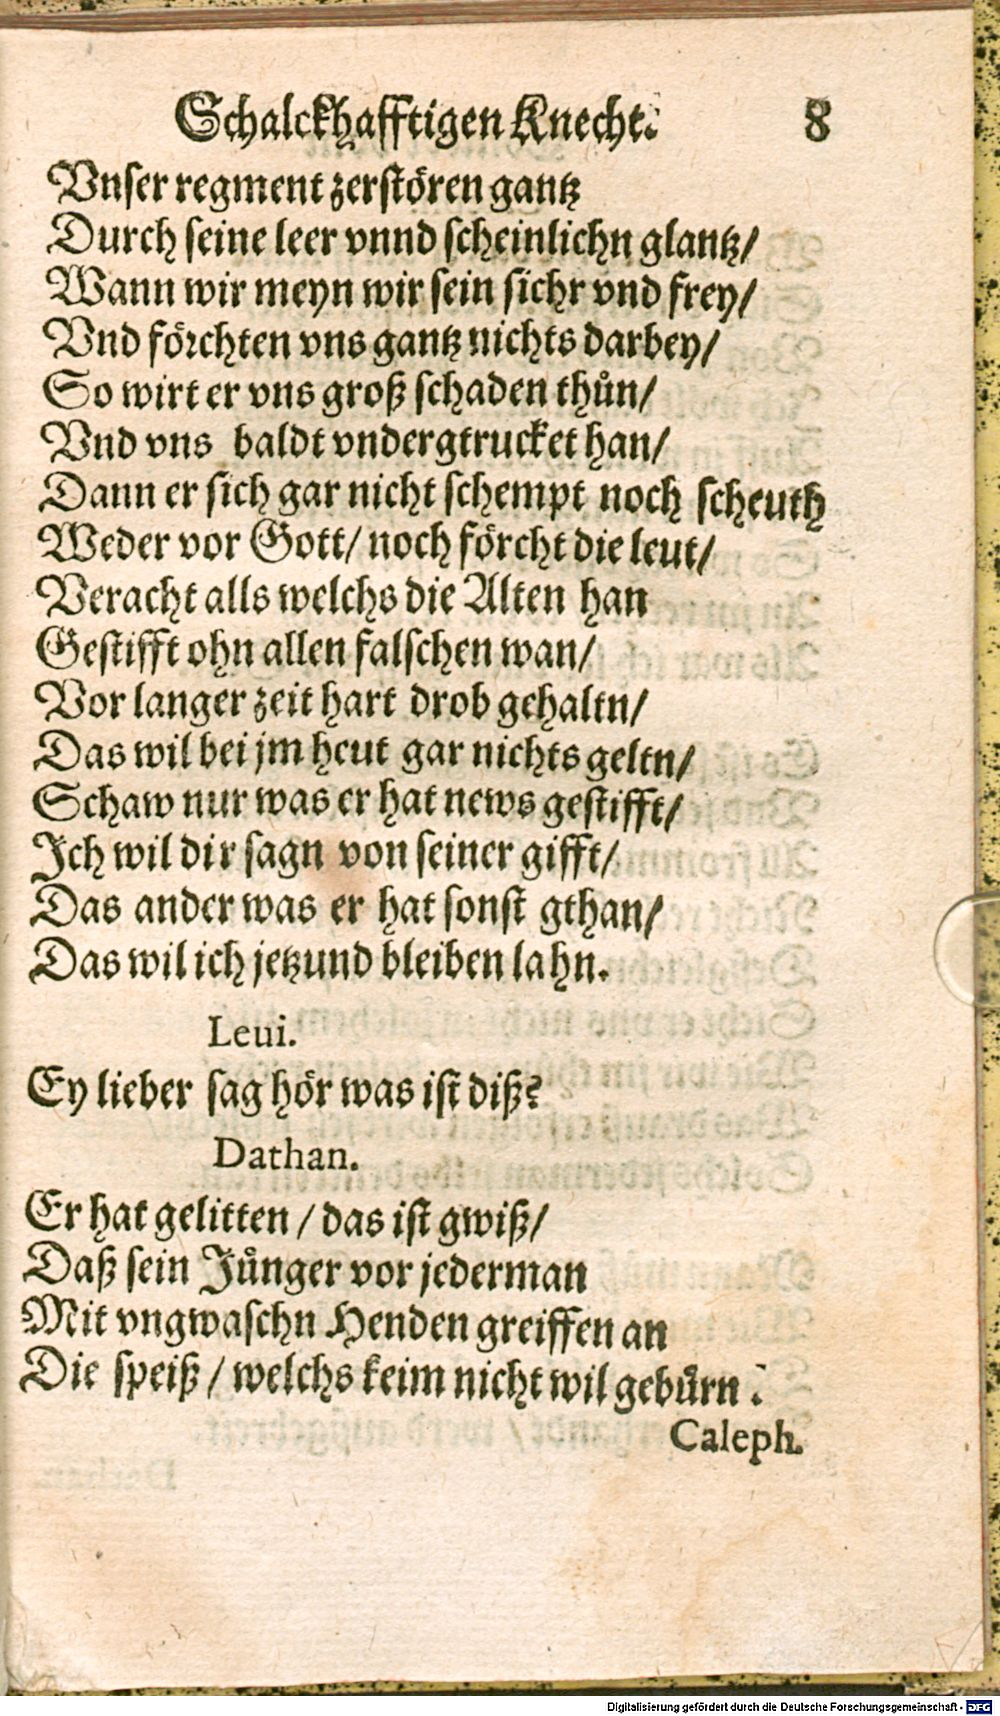 Schalckhafftigen Knecht. 8
Vnſer regment zerſtören gantz
Durch ſeine leer vnnd ſcheinlichn glantz/
Wann wir meyn wir ſein ſichr vnd frey/
Vnd föꝛchten vns gantz nichts darbey/
So wirt er vns groß ſchaden thůn/
Vnd vns baldt vndergtrucket han/
Dann er ſich gar nicht ſchempt noch ſcheuth
Weder vor Gott/ noch förcht die leut/
Veracht alls welchs die Alten han
Geſtifft ohn allen falſchen wan/
Vor langer zeit hart drob gehaltn/
Das wil bei jm heut gar nichts geltn/
Schaw nur was er hat news geſtifft/
Ich wil dir ſagn von ſeiner gifft/
Das ander was er hat ſonſt gthan/
Das wil ich jetzund bleiben lahn.
Leui.
Ey lieber ſag hör was iſt diß?
Dathan.
Er hat gelitten / das iſt gwiß/
Daß ſein Jůnger vor jederman
Mit vngwaſchn Henden greiffen an
Die ſpeiß / welchs keim nicht wil gebůrn.
Caleph.
Digitalisierung gefördert durch die Deutsche Forschungsgemeinschaft - DFG